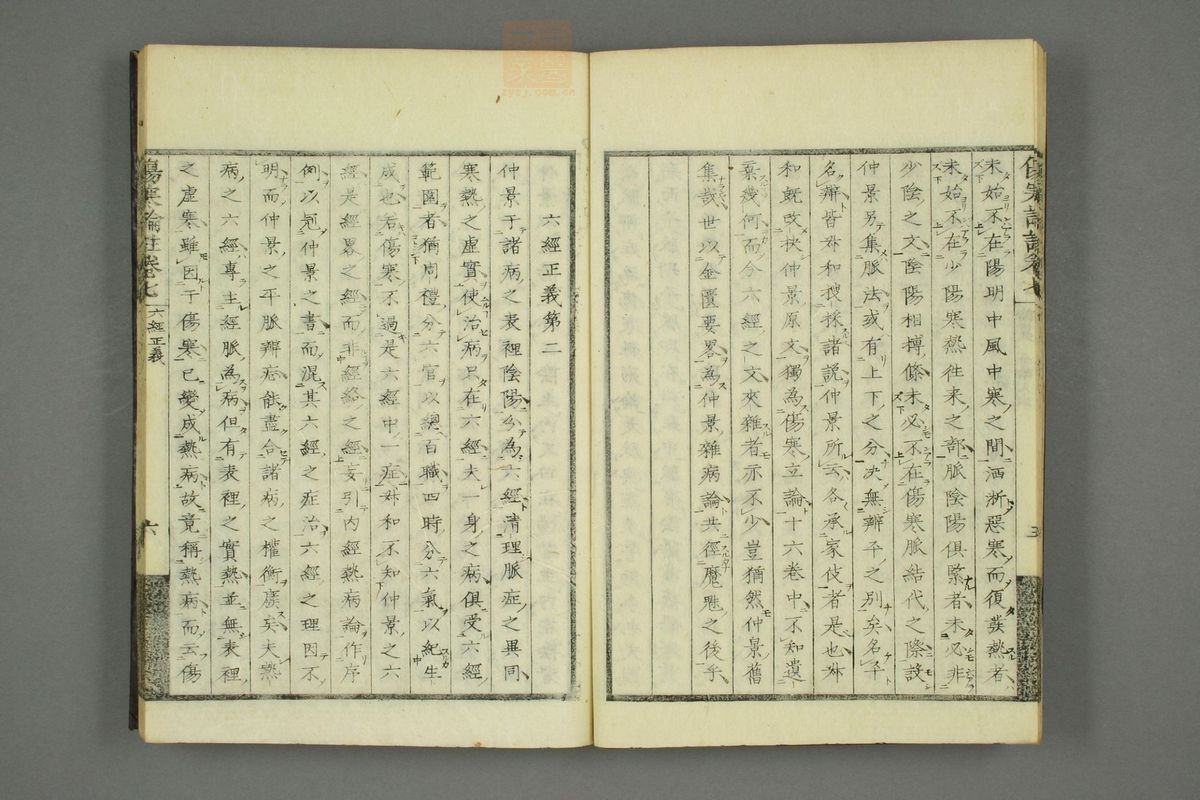 未始不在陽明中風中寒之間洒淅惡寒而復發熱者
未始不在少陽寒熱往來之部脈陰陽俱緊者未必非
少陰之文陰陽相搏條未必不在傷寒脈結代之際設
仲景另集脈法或有上下之分決無辨平之別矣名平
名辨皆叔和搜採諸說仲景所云各承家伎者是也叔
和既改換仲景原文獨為傷寒立論十六卷中不知遺
棄幾何而今六經之文夾雜者亦不少豈猶然仲景舊
集哉世以金匱要畧為仲景雜病論共徑庭之後乎
六經正義第二
仲景于諸病之表裡陰陽分為六經清理脈症之異同
寒熱之虛實使治病只在六經夫一身之病俱受六經
範圍者猶周禮分六官以總百職四時分六氣以紀生
成也若傷寒不過是六經中一症叔和不知仲景之六
經是經畧之經而非經絡之經妄引內經熱病論作序
例以冠仲景之書而混其六經之症治六經之理因不
明而仲景之平脈辨症能盡合諸病之權衡廢矣夫熱
病之六經專主經脈為病但有表裡之實熱並無表裡
之虛寒雖因于傷寒已變成熱病故竟稱熱病而云傷
傷寒論註卷七
六經正義
六